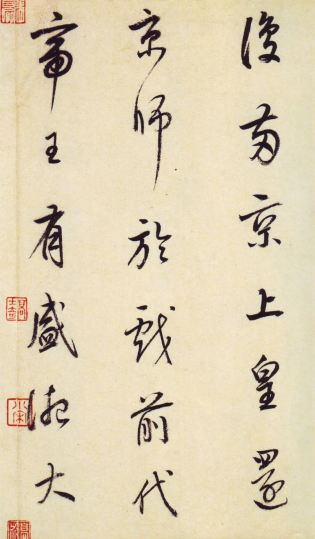 復兩京上皇還
京師於戲前代
帝王有盛德大